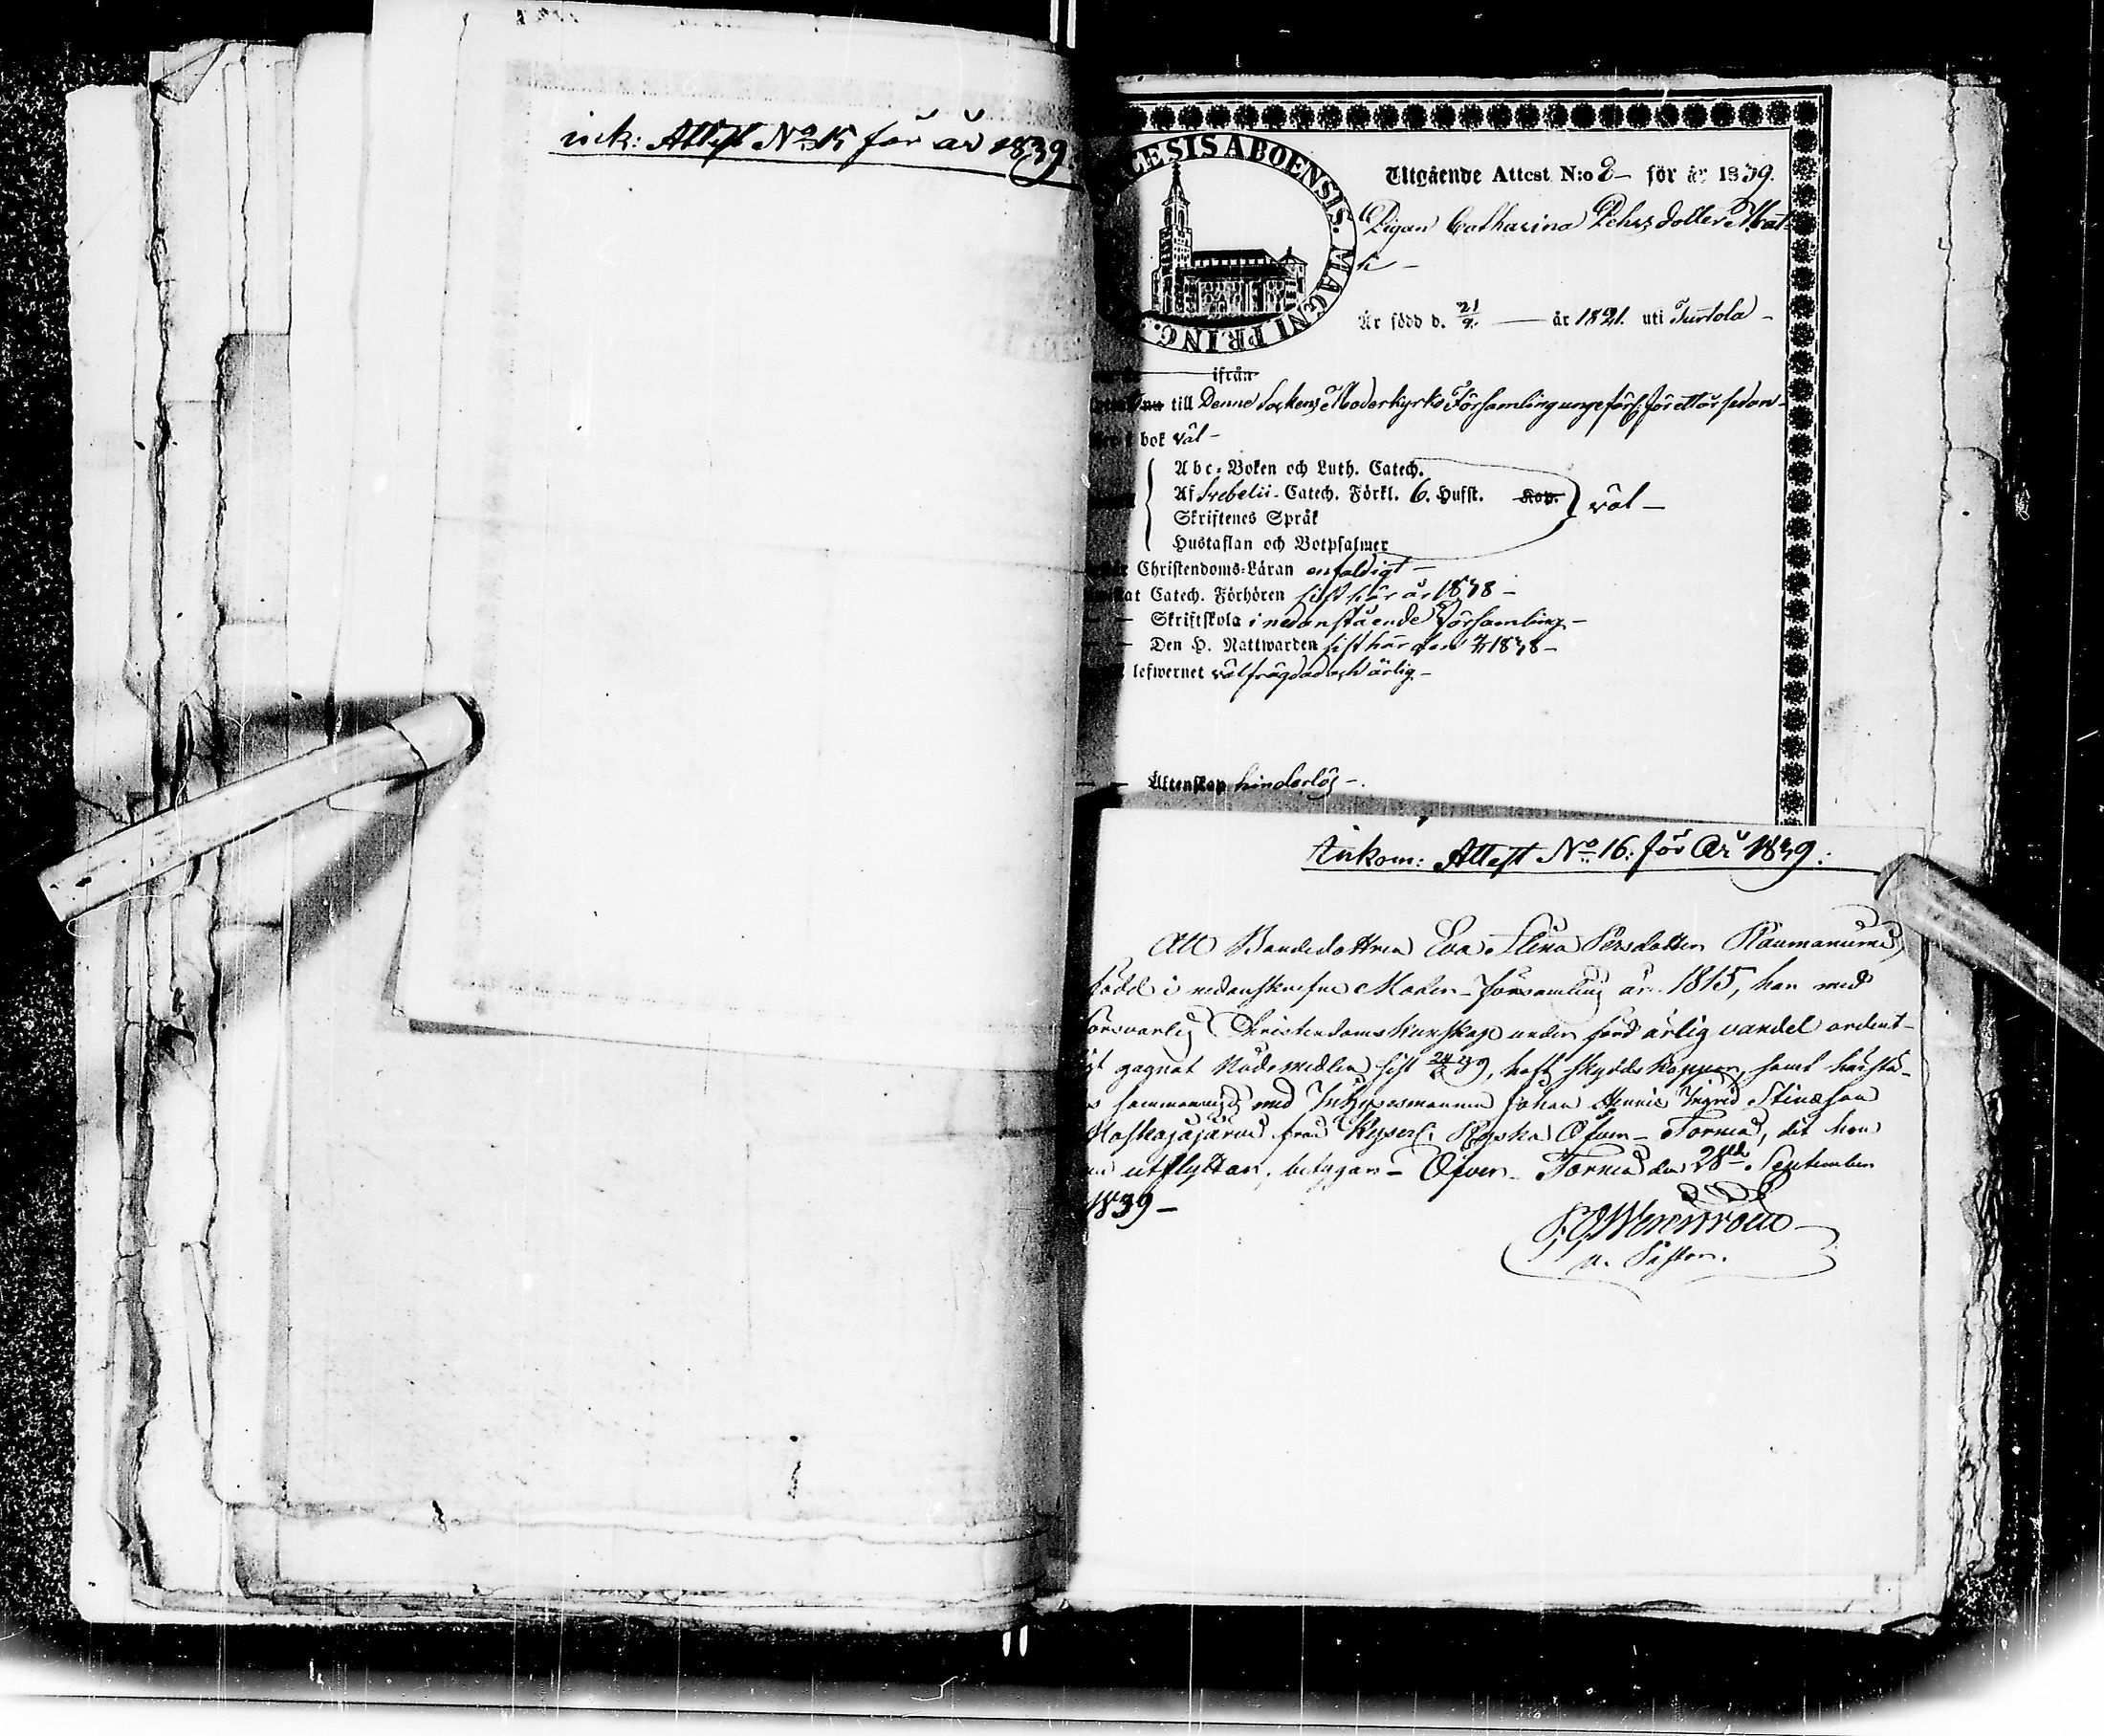 ink: Attest No 15 för år 1839.
CESIS ABOENSIS. MAGNI PRINC.
Utgående Attest N:o 2 – för år 1839.
Pigan Catharina Pehrsdotter
Är född d. 21/9. — år 1821. uti Turtola –
ifrån
till Denne Sockens Moderkyrko Församling ungefär för ett år sedan –
bok väl –
Abc-Boken och Luth. Catech.
Af Svebelii Catech. Förkl. 6. Hufst. Kop. väl –
Skriftenes Språk
Hustaflan och Botpsalmer
Christendoms-Läran enfaldigt –
at Catech. Förhören sist här år 1838 –
— Skriftskola i nedanstående Församling –
— Den H. Nattwarden sist här den 1838 –
lefwernet välfrägdad och ärlig –
— Äktenskap hinderlös –.
Inkom: Attest No 16: för År 1839:
Att Bondedottren Eva Stina Persdotter
född i nedanskrefne Moder-församling år 1815, har med
försvarlig Christendoms kunskap under förd ärlig vandel ordent-
gagnat Nådemedlen sist 24/ 39, haft skyddskoppor, samt
med Inhysesmannen Johan Henric Ingrid Stinason
från Keyserl. Ryska Öfver-Torneå, dit hon
utflyttar, betygar – Öfver-Torneå den 28de September
1839 –
v. Pastor.